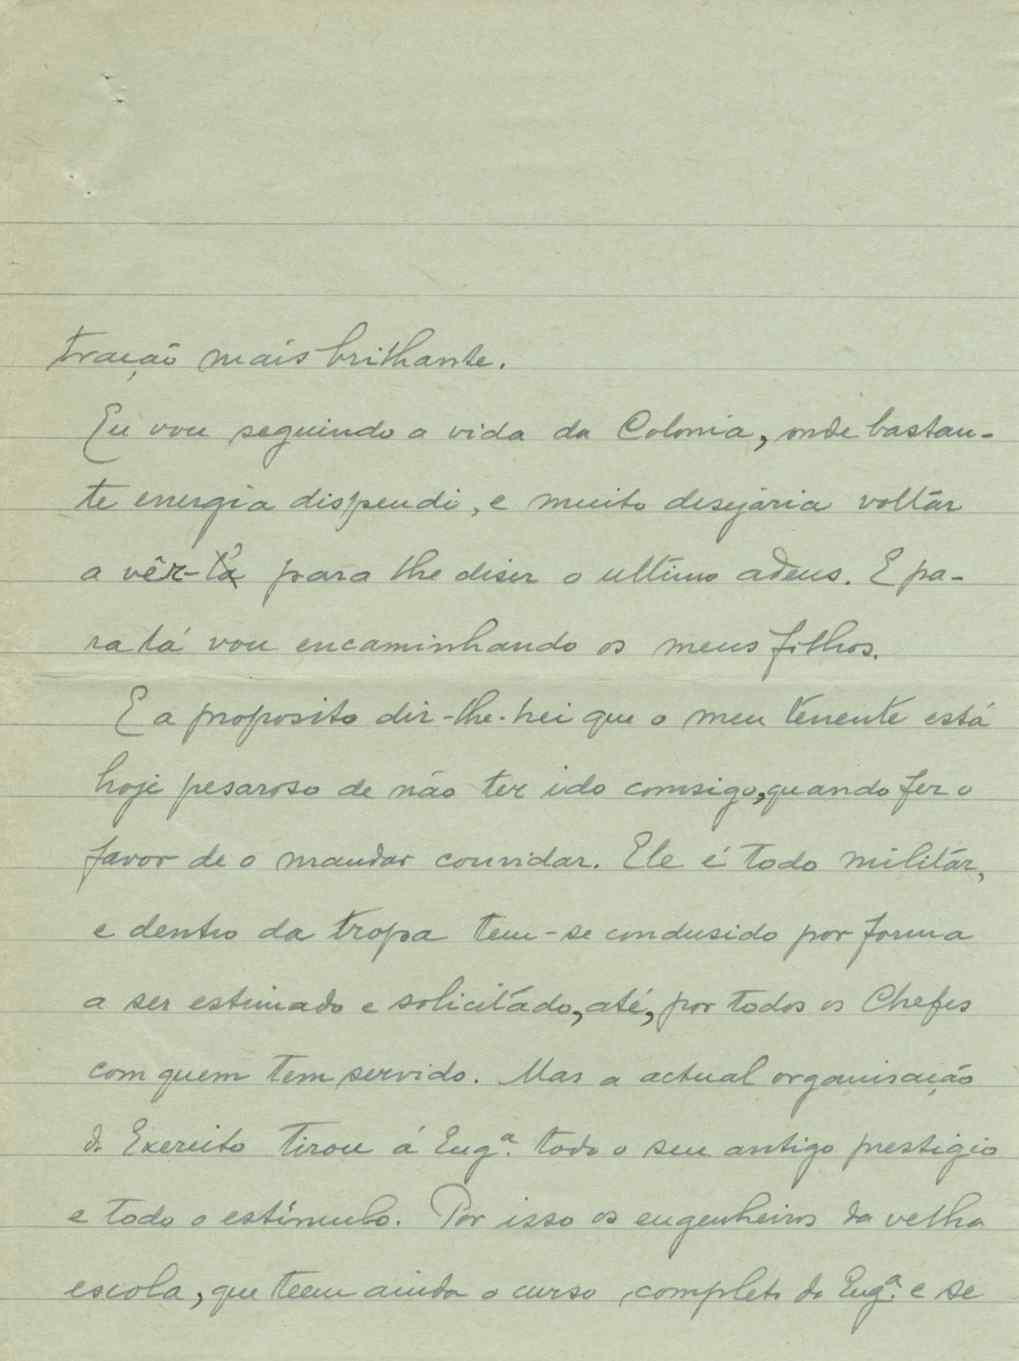 tração mais brilhante.
Eu vou seguindo a vida da Colonia, onde bastan-
te energia dispendi, e muito desejaria voltár
a vêr-la para lhe diser o ultimo adeus. E pa-
ra lá vou encaminhando os meus filhos.
E a proposito dir-lhe-hei que o meu tenente está
hoje pesaroso de não ter ido comsigo, quando fez o
favor de o mandar convidar. Ele é todo militár,
e dentro da tropa tem-se condusido por forma
a ser estimado e solicitádo, até, por todos os Chefes
com quem tem servido. Mas a actual organisação
do Exercito tirou á Engª. todo o seu antigo prestigio
e todo o estímulo. Por isso os engenheiros da velha
escola, que teem ainda o curso completo da Engª. e se